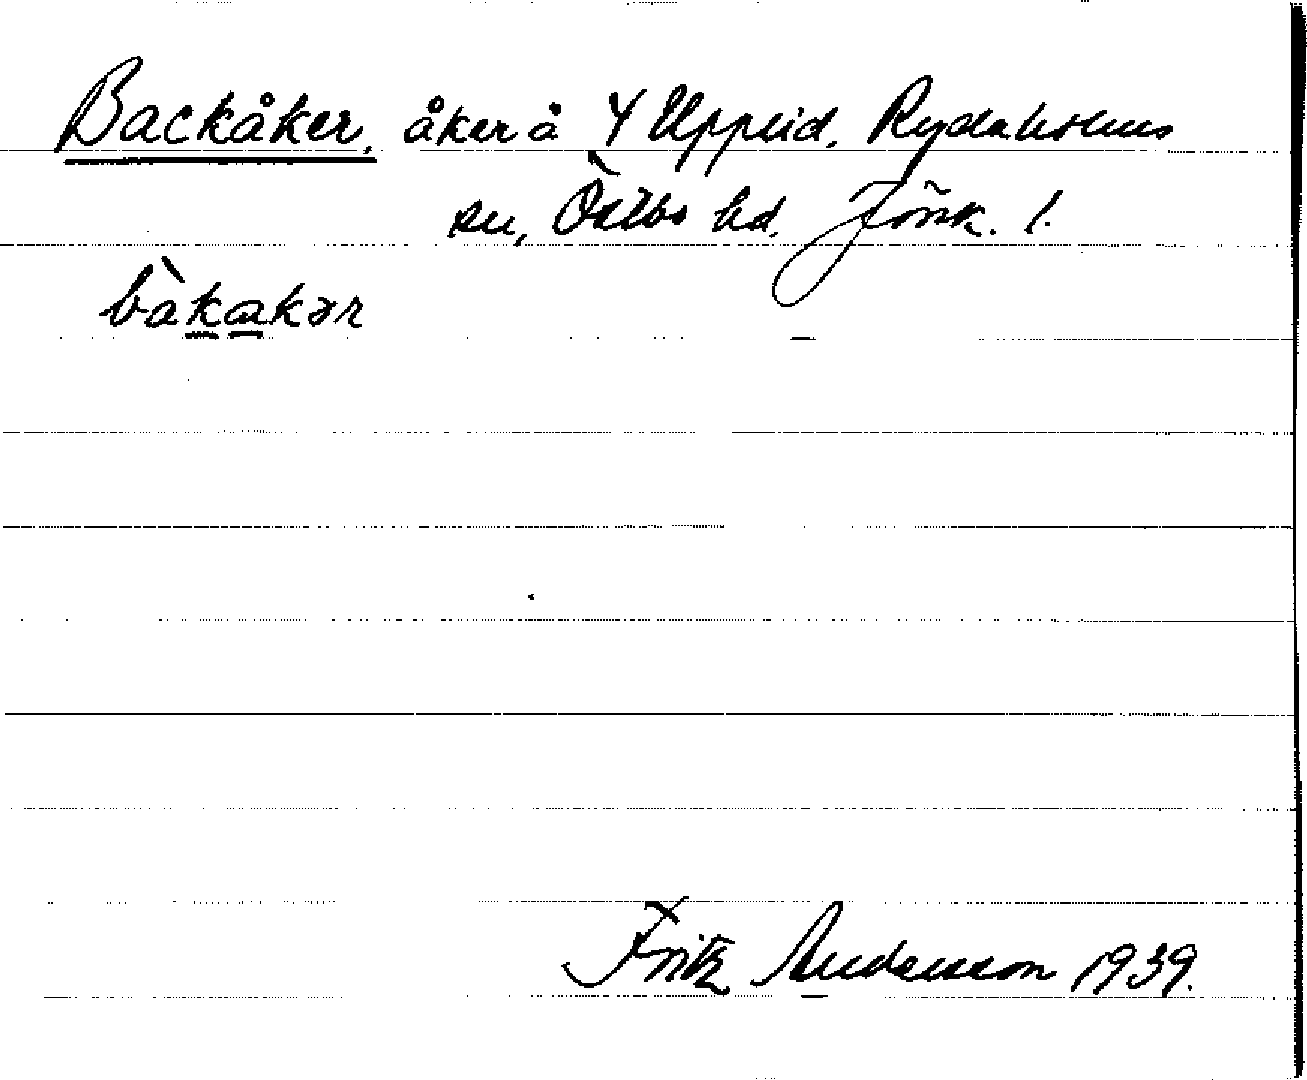 Backåker, åker å Y Upplid, Rydaholms
sn, Östbo hd. Jönk. l.
bàkakər
Fritz Andersson 1939.